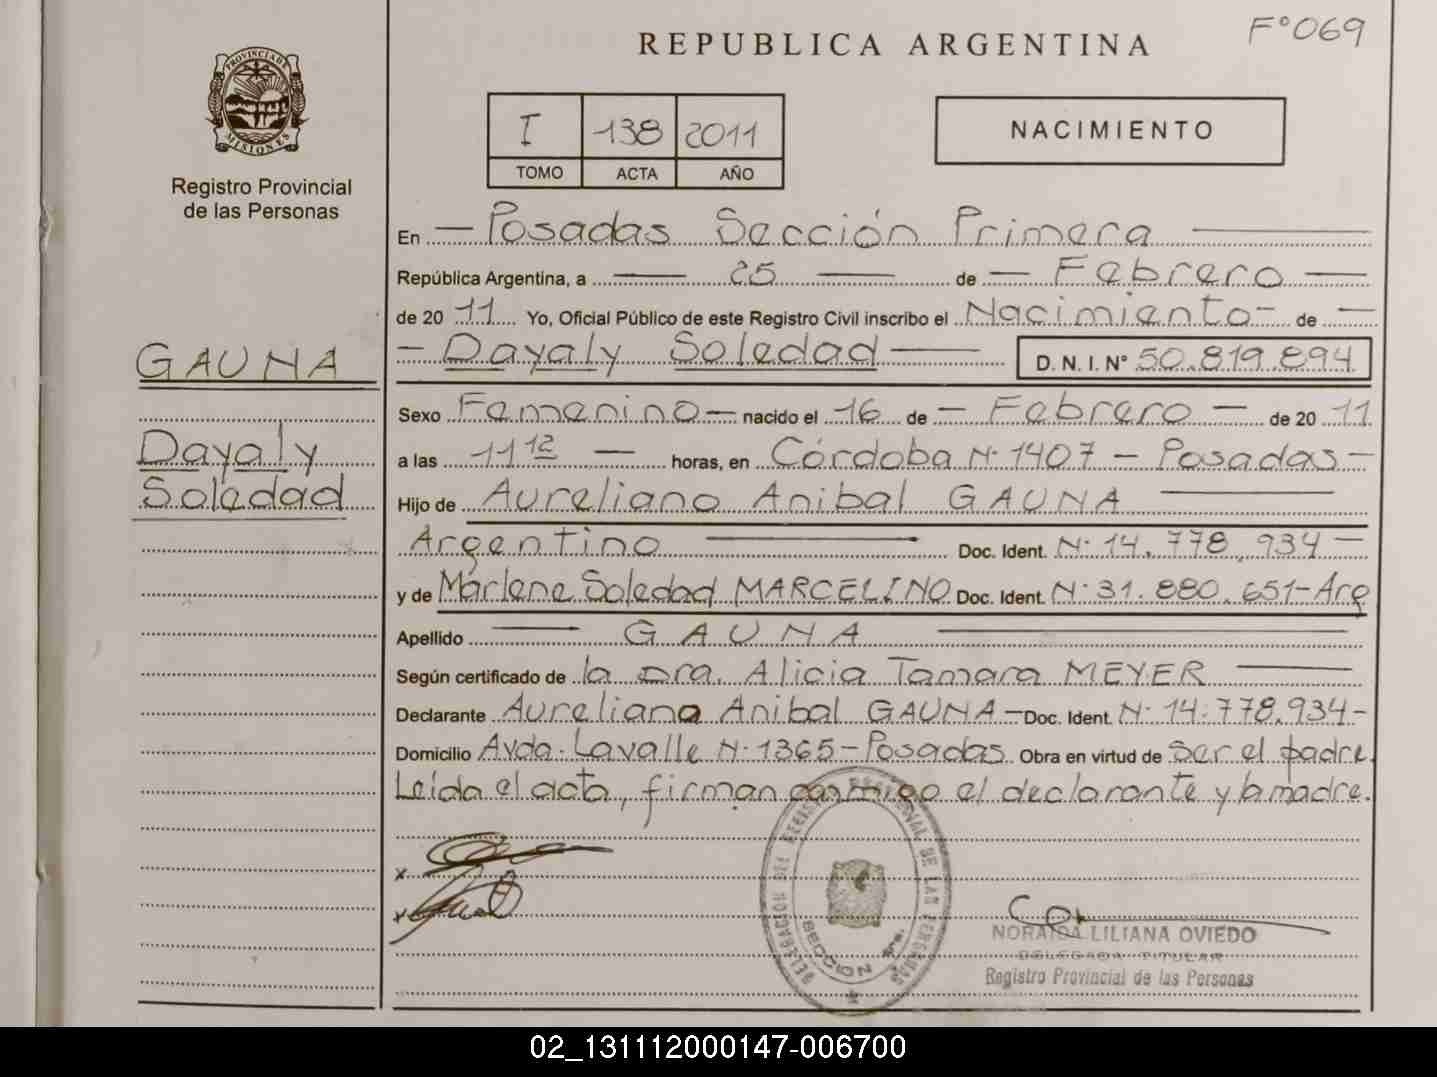 F° 069
REPUBLICA ARGENTINA
PROVINCIA DE MISIONES
Registro Provincial
de las Personas
I 138 2011
TOMO ACTA AÑO
NACIMIENTO
En — Posadas Sección Primera —
República Argentina, a — 25 — de — Febrero —
de 20 11 Yo, Oficial Público de este Registro Civil inscribo el Nacimiento — de —
— Dayaly Soledad — D. N. I. N° 50.819.894
GAUNA
Dayaly
Soledad
Sexo Femenino — nacido el 16 de — Febrero — de 20 11
a las 11 12 — horas, en Córdoba N° 1407 — Posadas —
Hijo de Aureliano Anibal GAUNA —
Argentino — Doc. Ident. N° 14.778.934 —
y de Marlene Soledad MARCELINO Doc. Ident. N° 31.880.651 - Arg
Apellido — GAUNA —
Según certificado de la Dra. Alicia Tamara MEYER —
Declarante Aureliano Anibal GAUNA — Doc. Ident. N° 14.778.934 -
Domicilio Avda. Lavalle N° 1365 - Posadas Obra en virtud de ser el padre.
Leída el acta, firman conmigo el declarante y la madre.
DELEGACION DEL REGISTRO PROVINCIAL DE LAS PERSONAS
SECCION 1ra.
NORAIDA LILIANA OVIEDO
DELEGADA TITULAR
Registro Provincial de las Personas
02_131112000147-006700